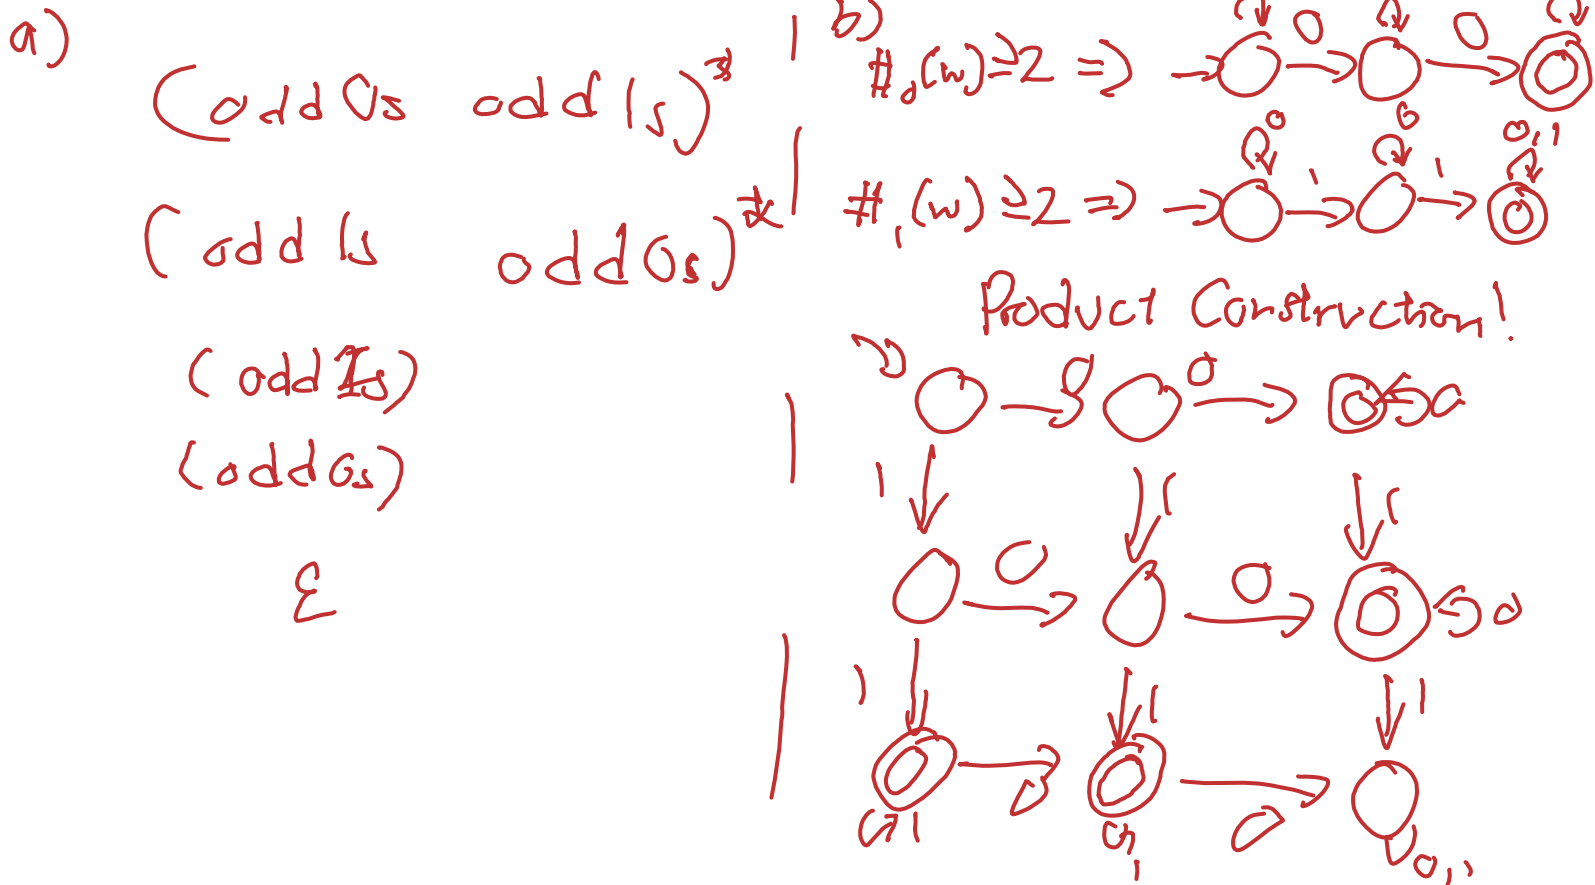 a)
(odd 0s odd 1s)*
(odd 1s odd 0s)*
(odd 1s)
(odd 0s)
ε
b)
#₀(w) ≥ 2 ⇒
0 0
#₁(w) ≥ 2 ⇒
0 0 0,1
1 1
Product Construction!
0 0 0
1 1 1
0 0 0
1 1 1
0 0
1 0, 1 0,1